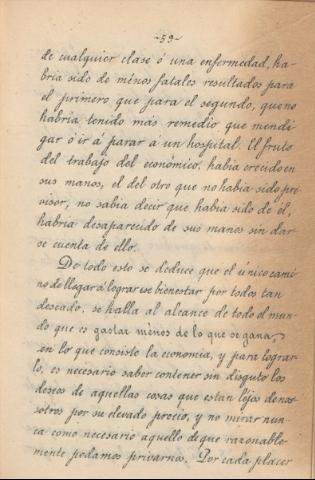 -59-
de cualquier clase ó una enfermedad, ha-
bria sido de ménos fatales resultados para
el primero que para el segundo, que no
habria tenido mas remedio que mendi-
gar ó ir á parar á un hospital. El fruto
del trabajo del económico, habia crecido en
sus manos, el del otro que no habia sido pre-
visor, no sabia decir que habia sido de él,
habria desaparecido de sus manos sin dar-
se cuenta de ello.
De todo esto se deduce que el único cami-
no de llegar á lograr ese bienestar por todos tan
deseado, se halla al alcance de todo el mun-
do que es gastar ménos de lo que se gana,
en lo que consiste la economia, y para lograr-
lo, es necesario saber contener sin disgusto los
deseos de aquellas cosas que están lejos de nos-
otros por su elevado precio, y no mirar nun-
ca como necesario aquello de que razonable-
mente podamos privarnos. Por cada placer